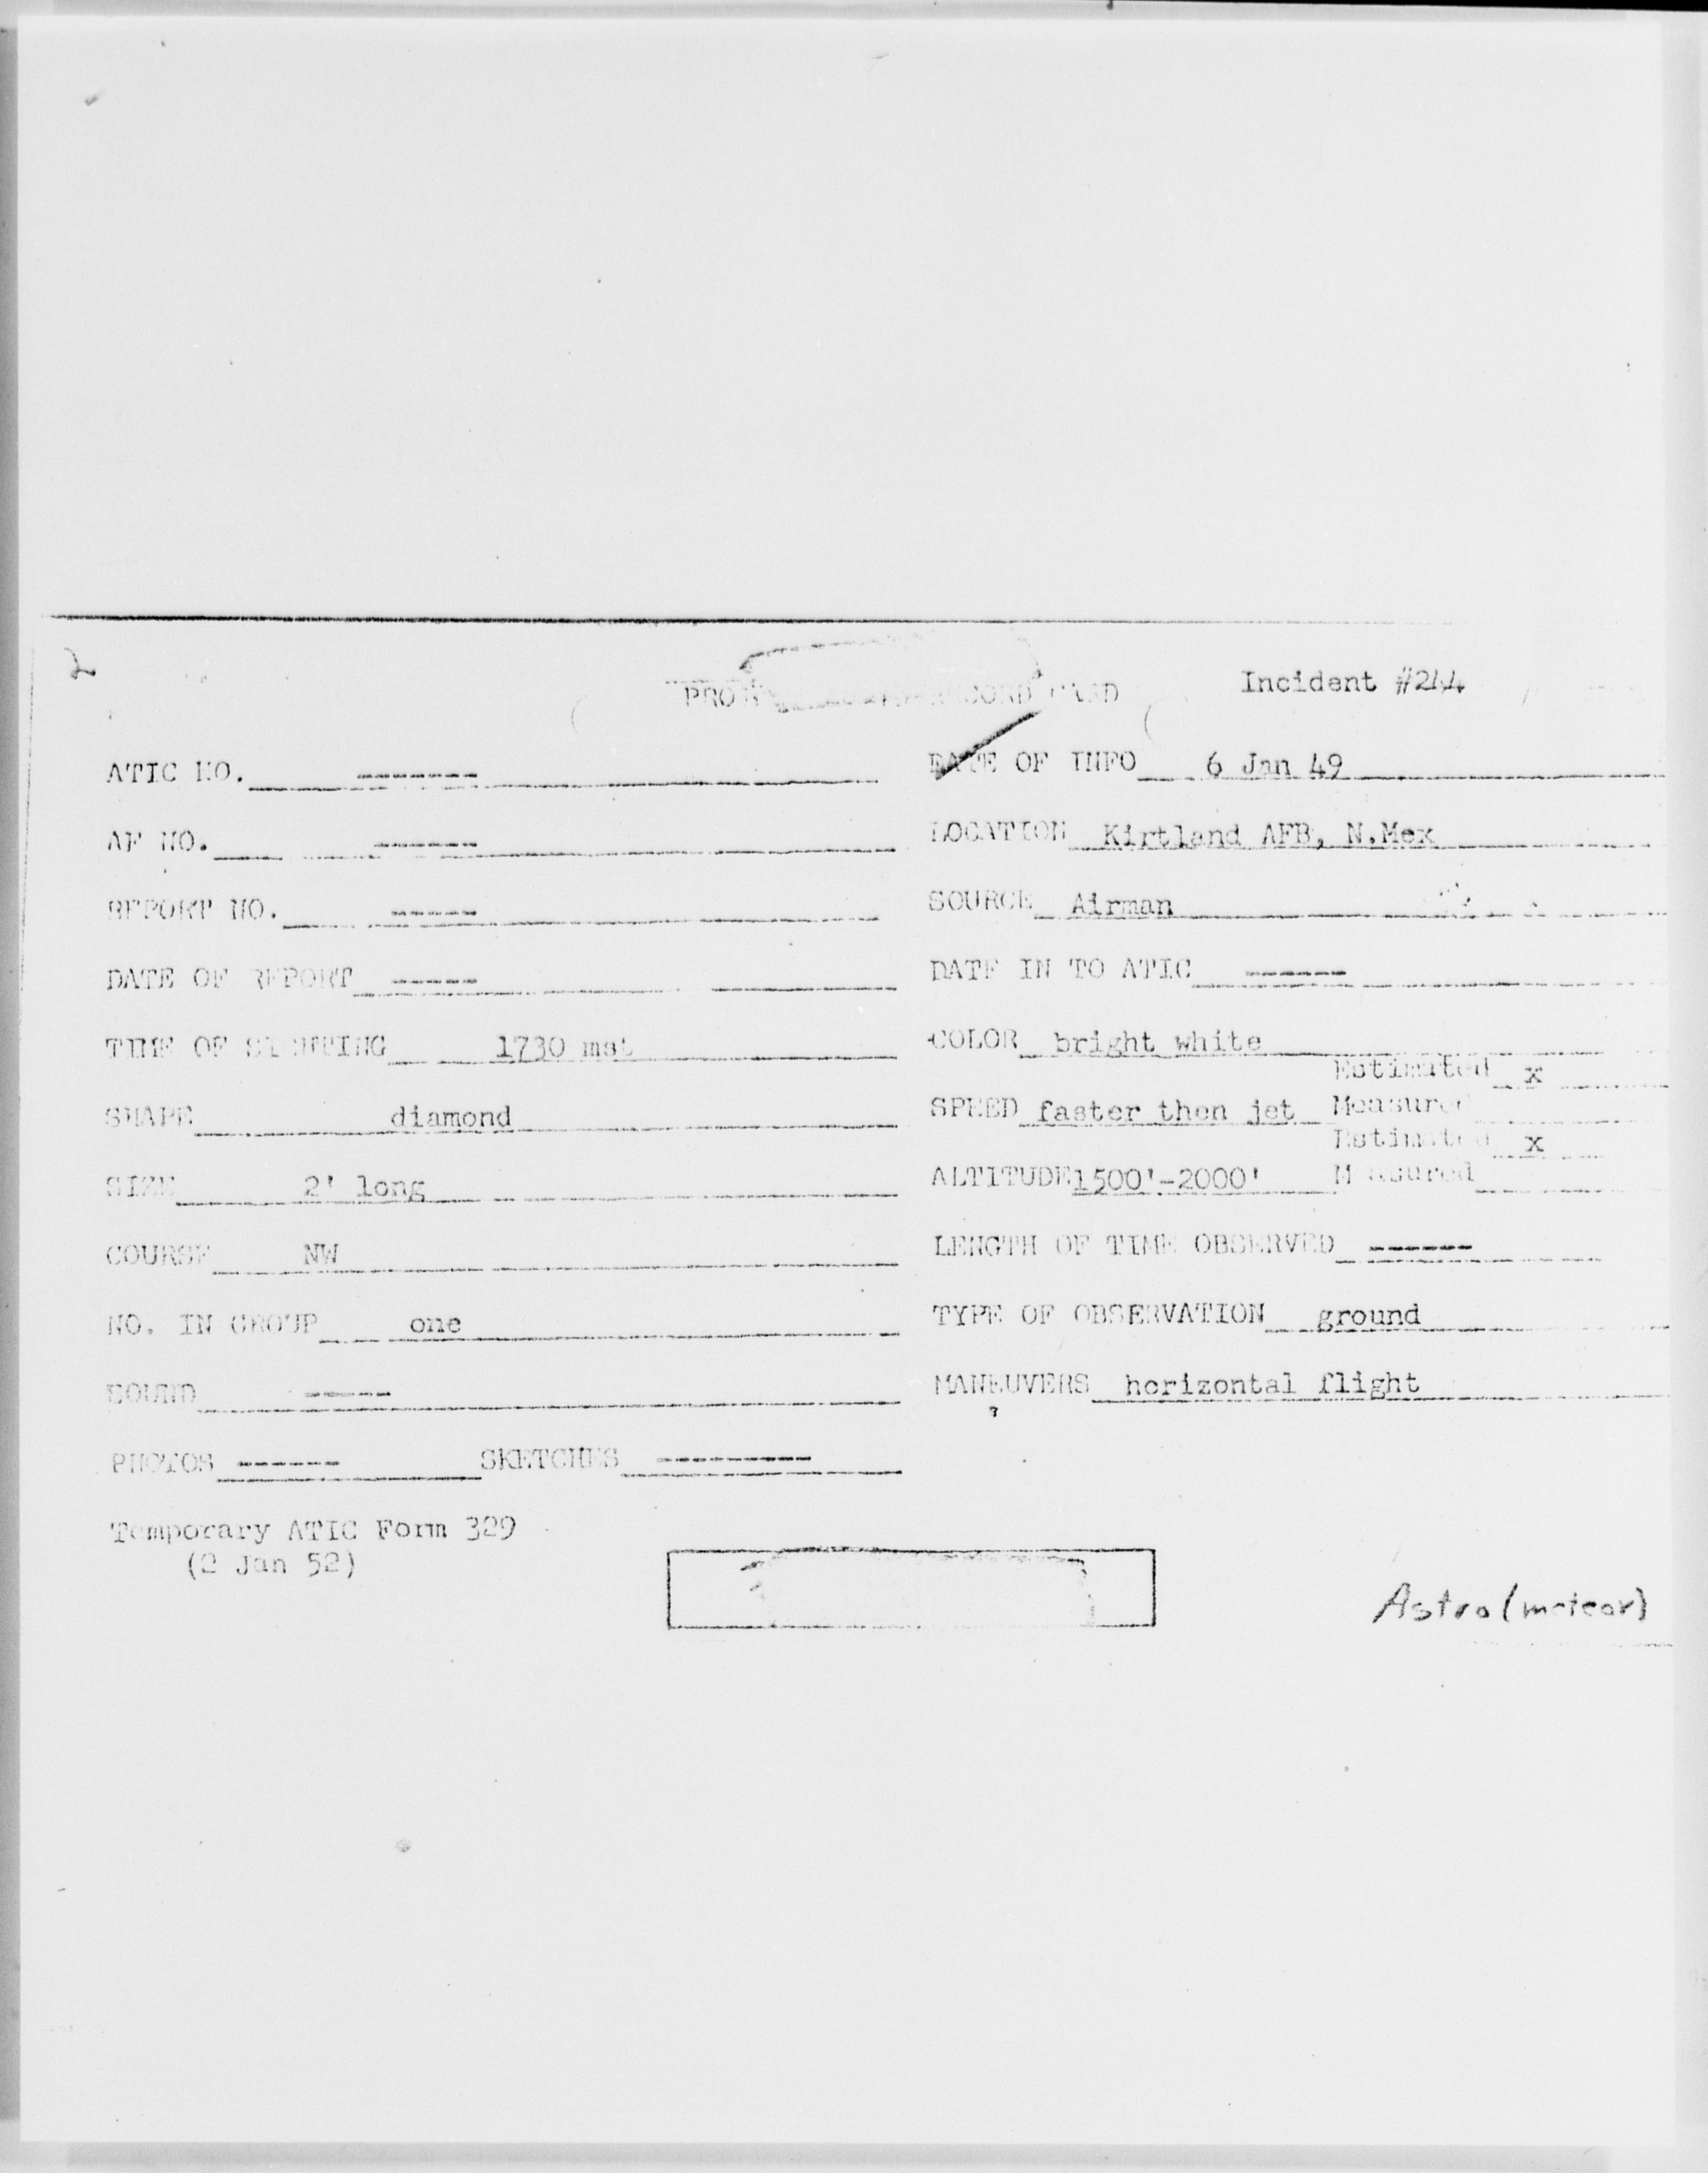 2
Incident #244
ATIC NO. ------- DATE OF INFO 6 Jan 49
AF NO. ------ LOCATION Kirtland AFB, N.Mex
REPORT NO. ----- SOURCE Airman
DATE OF REPORT ----- DATE IN TO ATIC ------
TIME OF SIGHTING 1730 mst COLOR bright white
Estimated x
SHAPE diamond SPEED faster then jet Measured
Estimated x
SIZE 2' long ALTITUDE 1500'-2000' Measured
COURSE NW LENGTH OF TIME OBSERVED ------
NO. IN GROUP one TYPE OF OBSERVATION ground
SOUND ----- MANEUVERS horizontal flight
PHOTOS ------ SKETCHES ---------
Temporary ATIC Form 329
(2 Jan 52)
Astro (meteor)